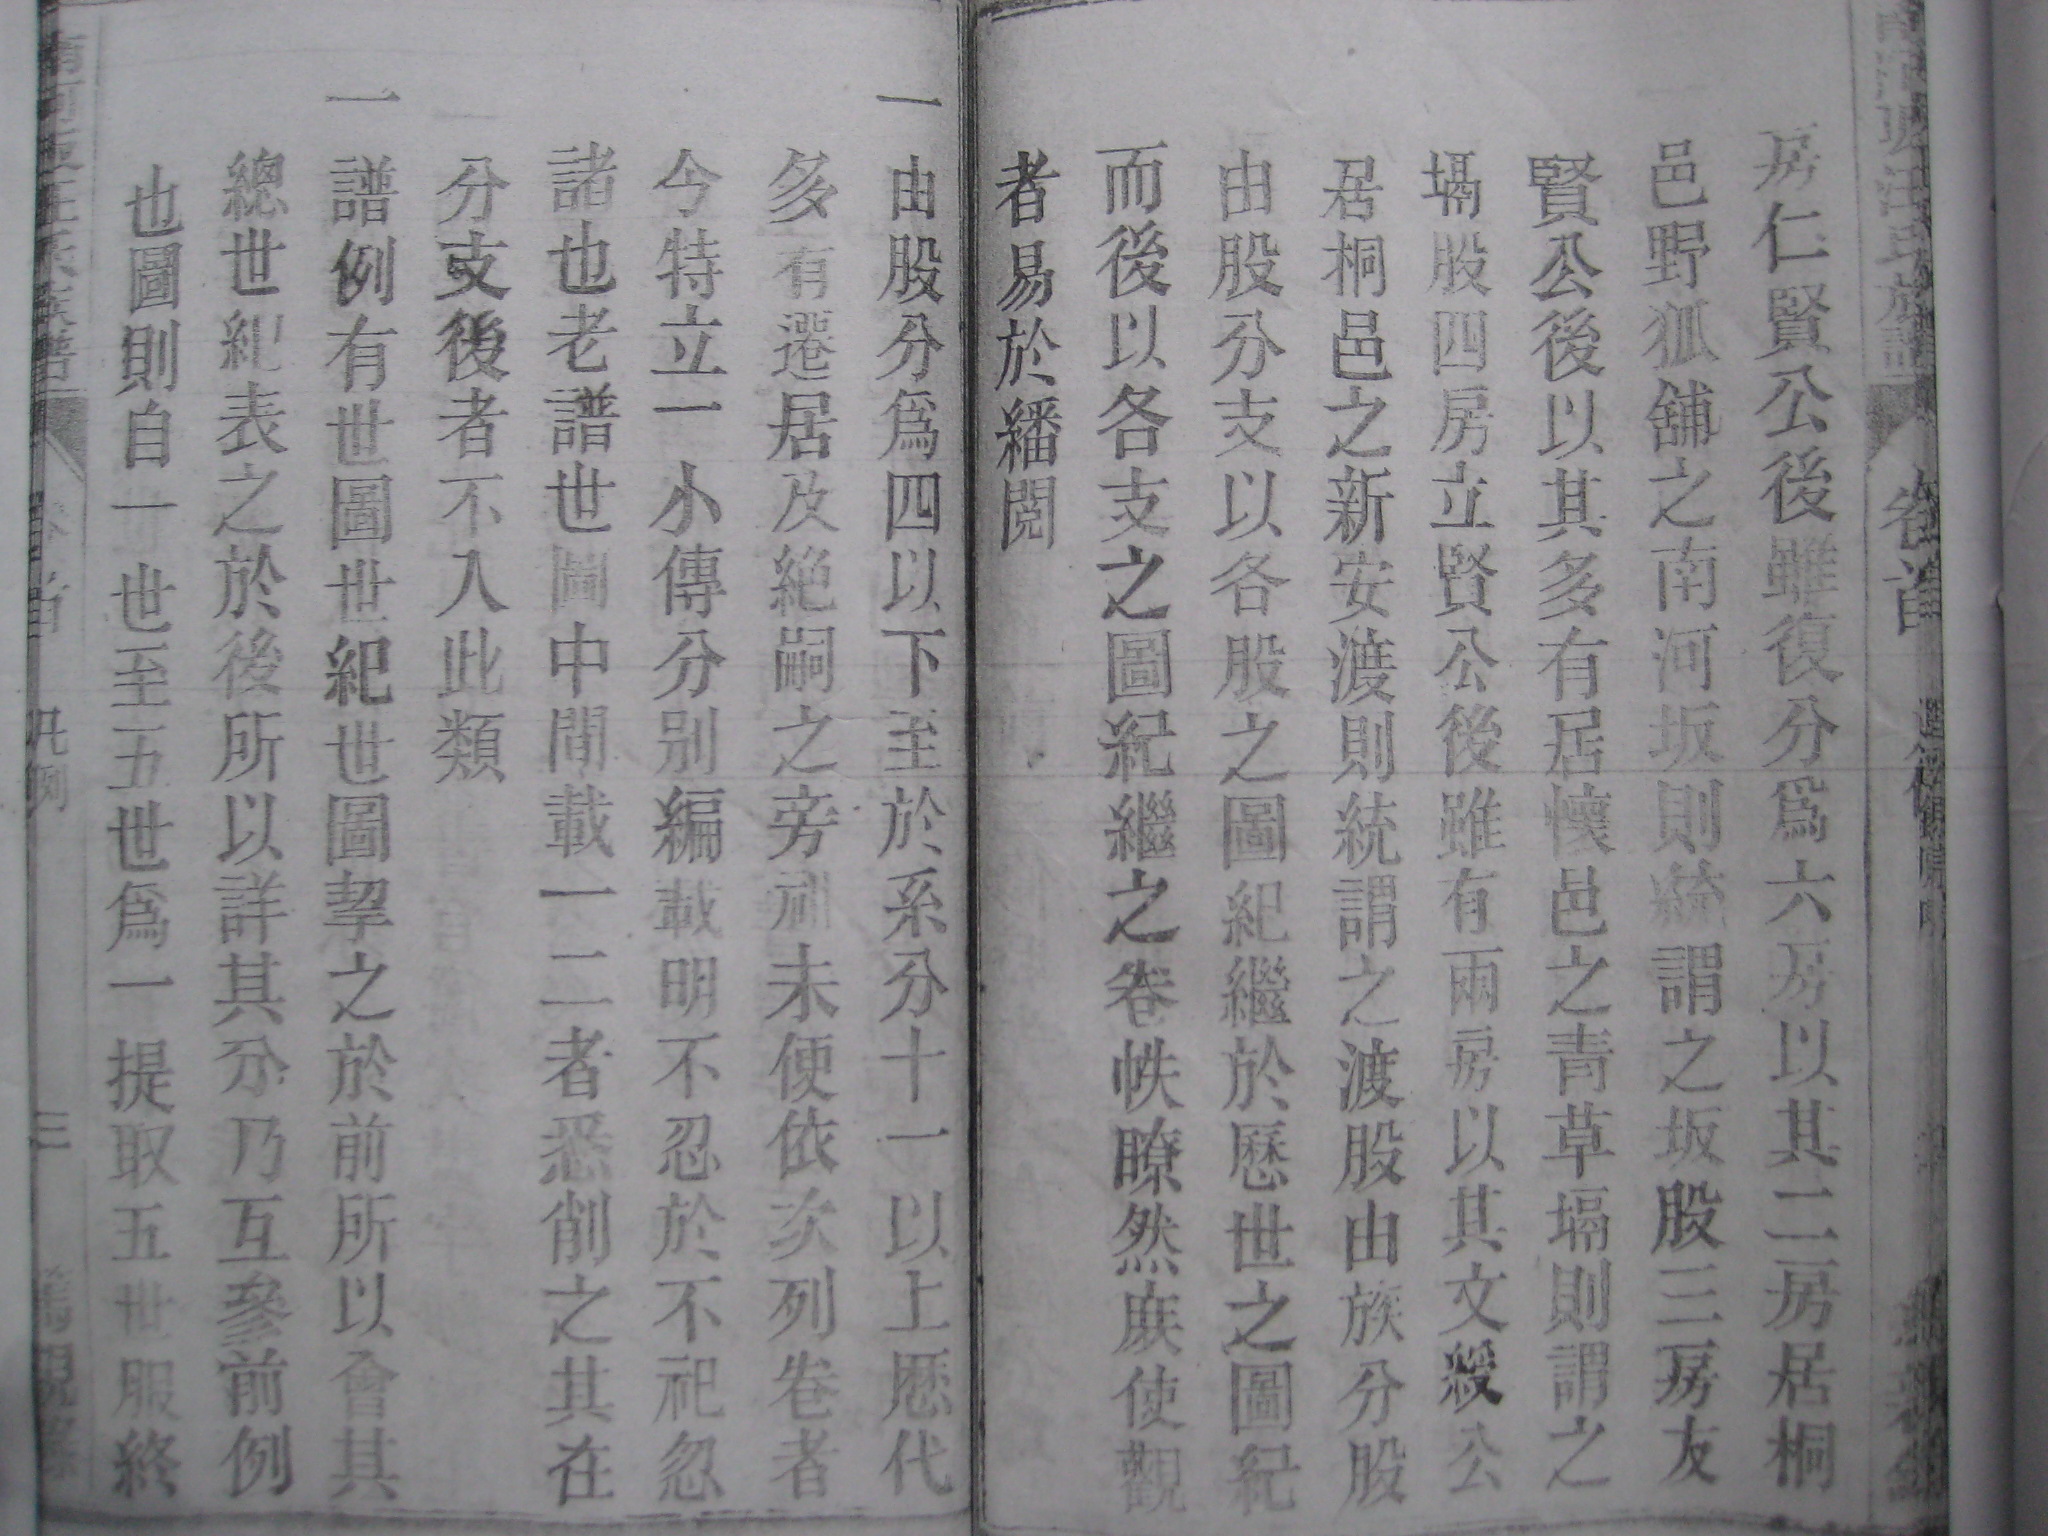 房仁賢公後雖復分爲六房以其二房居桐
邑野狐舖之南河坂則統謂之坂股三房友
賢公後以其多有居懷邑之青草塥則謂之
塥股四房立賢公後雖有兩房以其文毅公
居桐邑之新安渡則統謂之渡股由族分股
由股分支以各股之圖紀繼於歷世之圖紀
而後以各支之圖紀繼之卷帙瞭然庶使觀
者易於繙閱
一由股分爲四以下至於系分十一以上歷代
多有遷居及絕嗣之旁㳂未便依次列卷者
今特立一小傳分别編載明不忍於不祀忽
諸也老譜世圖中間載一二者悉削之其在
分支後者不入此類
一譜例有世圖世紀世圖挈之於前所以會其
總世紀表之於後所以詳其分乃互參前例
也圖則自一世至五世爲一提取五世服終
卷首
凡例
三